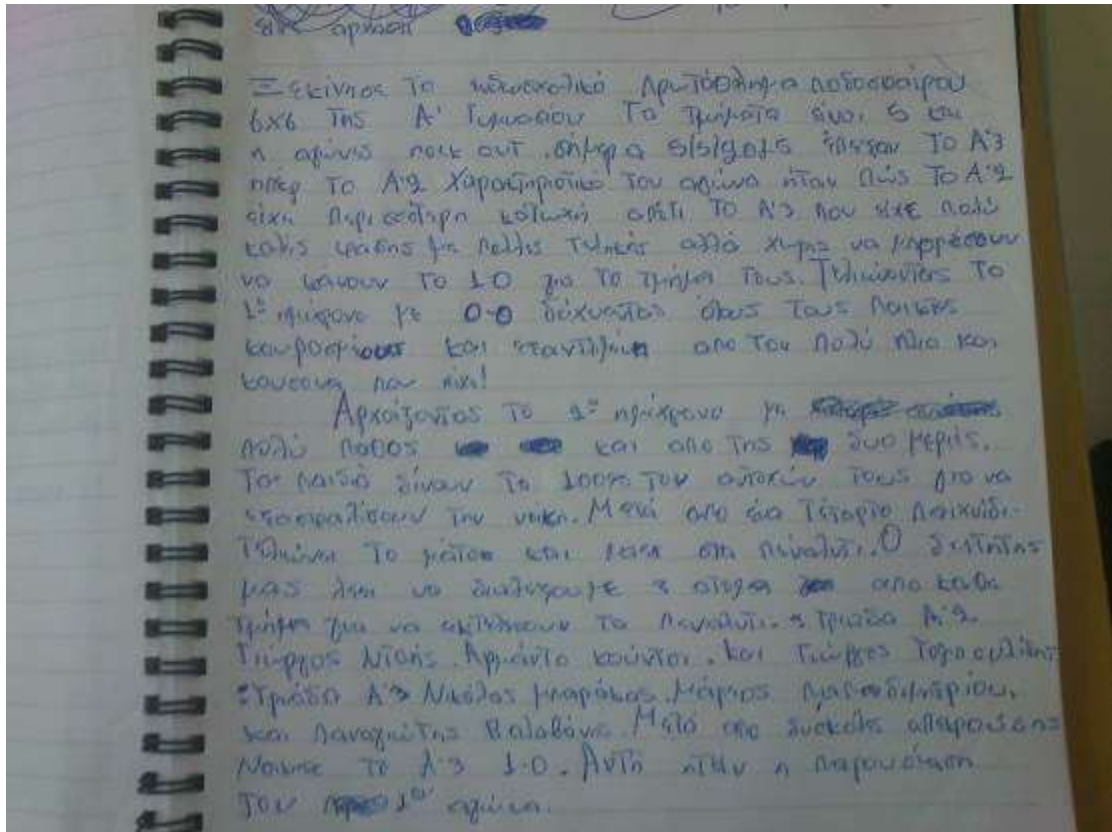 αρχαση
Ξεκίνησε το πρωτάθλημα ποδοσφαίρου
6x6 της Α' Γυμνασίου Τα τμήματα είναι 5 και
η αγώνες νοκ αουτ. σήμερα 5/5/2015 έπαιξαν Το Α'3
περ το Α'2 Χαρακτηριστικό του αγώνα ήταν πώς το Α'2
είχε περισσότερη κατοχή απότι το Α'3 που είχε πολύ
καλές φασης με πολλές τελικές αλλά χωρις να μπορέσουν
να κανουν το 1-0 για το τμήμα τους. Τελιώντας το
1º ημιχρονο με 0-0 όλους τους παικτες
κουρασμένους και εξαντλημένη απο τον πολύ ηλιο και
καυσωνα που είχε!
Αρχαίζοντας το 2º ημιχρονο με
πολύ παθος και απο της δυο μεριές.
Τα παιδιά δίνουν το 100% τον αυτοκών τους για να
εξασφαλίσουν την νικη. Μετά απο ένα τέταρτο παιχνίδι
τελιώνει το μάτσο και πάει στα πέναλτι. Ο διετητης
μας λέει να διαλέξουμε 3 ατομα απο καθε
τμήμα για να εκτελέσουν τα πεναλτι. Τριάδα Α'2
Γιώργος Ντοής. Αρμάντο κούντοι. και Γιώργος
Τριάδα Α'3 Νικόλας μπαράκος. Μάριος παπαδημητρίου.
και παναγιώτης Βαλαβάνης. Μετά απο δυσκολες
Νοικησε το Α'3 1-0. Αυτή ηταν η παρουσίαση
του 1ου αγώνα.